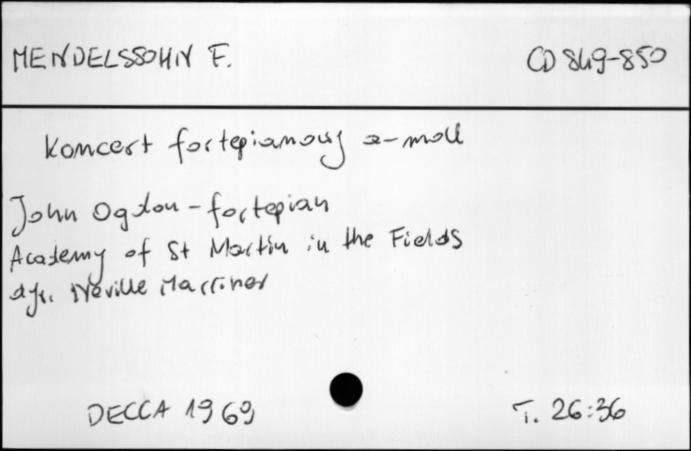 MENDELSSOHN F. CD 849-850
Koncert fortepianowy a-moll
John Ogdon - fortepian
Academy of St Martin in the Fields
dyr. Neville Marriner
DECCA 1969 T. 26:36